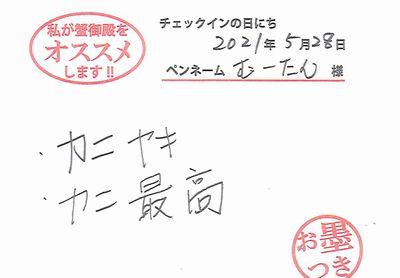 私が蟹御殿を
オススメ
します!!
チェックインの日にち
2021年5月28日
ペンネーム むーたん 様
・カニヤキ
・カニ最高
お墨
つき